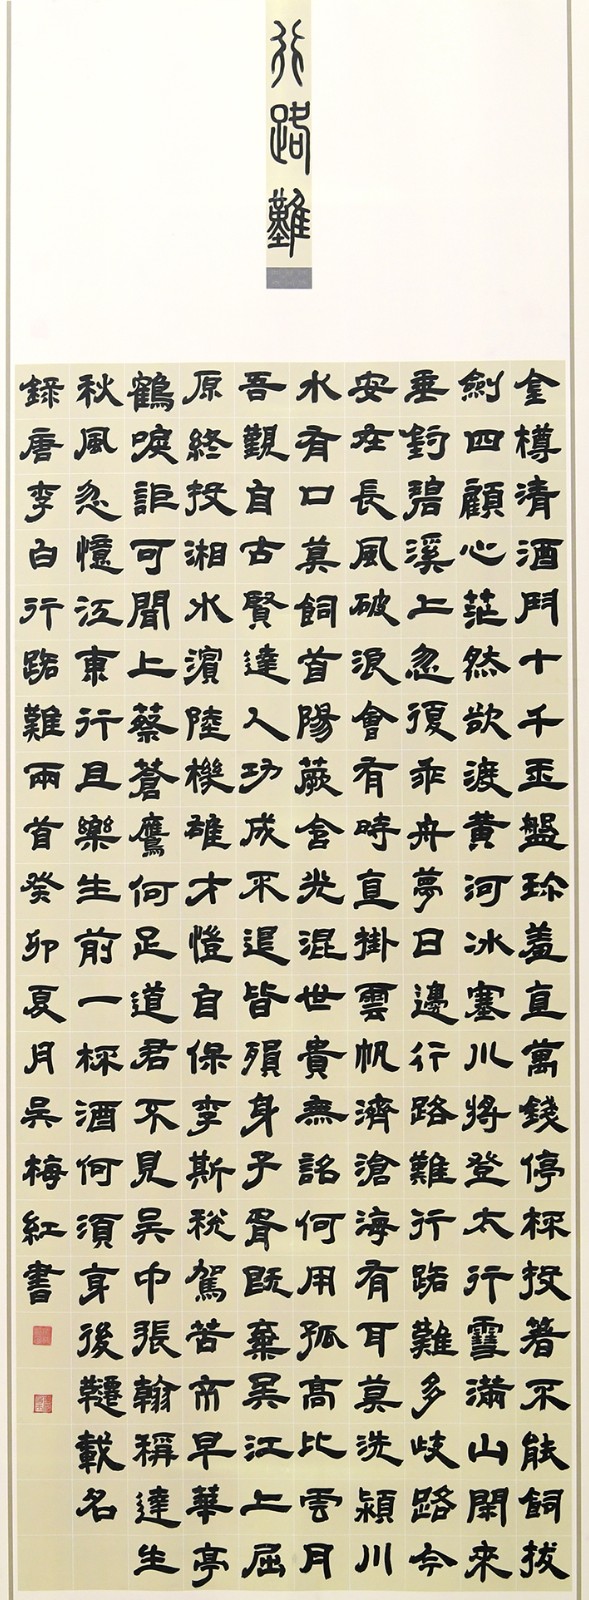 行路難
金樽清酒鬥十千玉盤珎羞直萬錢停杯投箸不能飼拔
劍四顧心茫然欲渡黃河冰塞川將登太行雪滿山閑來
垂釣碧溪上忽復乘舟夢日邊行路難行路難多歧路今
安在長風破浪會有時直掛雲帆濟滄海有耳莫洗潁川
水有口莫飼首陽蕨含光混世貴無詺何用孤高比雲月
吾觀自古賢達人功成不退皆殞身子胥既棄吳江上屈
原終投湘水濱陸機雄才愷自保李斯稅駕苦不早華亭
鶴唳詎可聞上蔡蒼鷹何足道君不見吳中張翰稱達生
秋風忽憶江東行且樂生前一杯酒何須身後韆載名
錄唐李白行路難兩首癸卯夏月吳梅紅書